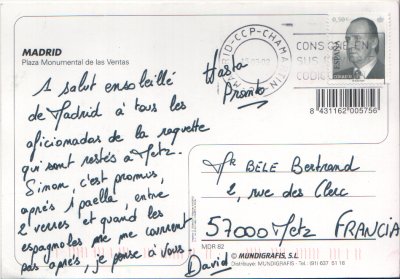 MADRID
Plaza Monumental de las Ventas
1 salut ensoleillé
de Madrid à tous les
aficionados de la raquette
qui sont restés à Metz.
Sinon, c'est promis,
après 1 paella, entre
2 verres et quand les
espagnoles me me courrent
pas après, je pense à vous.
David
Hasta
Pronto
MADRID-CCP-CHAMARTIN
CONSIGNE EN
SUS
CODIGO
0,50€
ESPAÑA
CORREOS
8 431162 005756
Mr BÈLE Bertrand
2, rue des Clerc
57000 Metz FRANCIA
MDR 82
© MUNDIGRAFIS, S.L.
Distribuye: MUNDIGRAFIS - Tel.: (91) 637 51 16